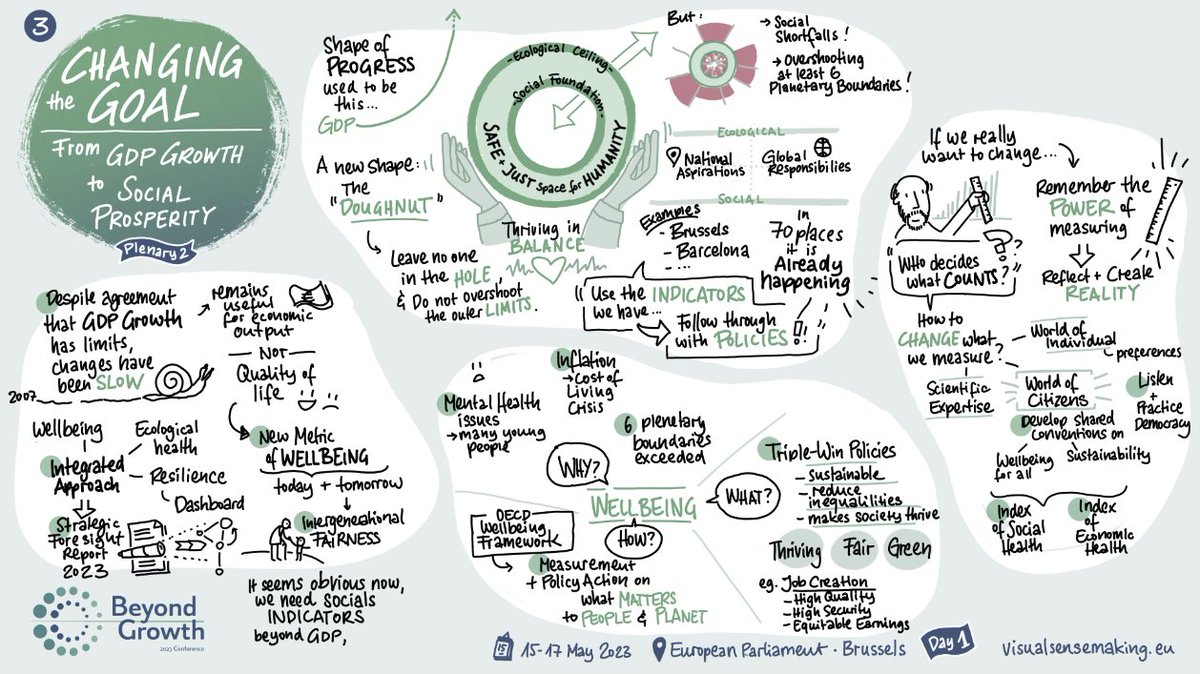 3
CHANGING
the GOAL
From GDP GROWTH
to SOCIAL
PROSPERITY
Plenary 2
Shape of
PROGRESS
used to be
this...
GDP
A new shape:
The
"DOUGHNUT"
Leave no one
in the HOLE,
& Do not overshoot
the outer LIMITS.
Ecological Ceiling
Social Foundation
SAFE + JUST Space for HUMANITY
Thriving in
BALANCE
But:
→ Social
Shortfalls!
→ Overshooting
at least 6
Planetary Boundaries!
ECOLOGICAL
National
Aspirations
Global
Responsibilies
SOCIAL
Examples
- Brussels
- Barcelona
- ...
in
70 places
it is
Already
happening
"Use the INDICATORS
we have...
Follow through
with POLICIES!!
If we really
want to change...
Remember the
POWER of
measuring
Reflect + Create
REALITY
"Who decides
what COUNTS?"
?
How to
CHANGE what
we measure?
World of
Individual
preferences
Scientific
Expertise
World of
Citizens
Listen
+
Practice
Democracy
Develop shared
Conventions on
Wellbeing
for all
Sustainability
Index
of Social
Health
Index
of
Economic
Health
Despite agreement
that GDP Growth
has limits,
changes have
been SLOW
2007
→ remains
useful
for economic
output
— NOT —
Quality of
life
New Metric
of WELLBEING
today + tomorrow
Intergenerational
FAIRNESS
Wellbeing
Ecological
health
Integrated
Approach
Resilience
Dashboard
Strategic
Foresight
Report
2023
It seems obvious now,
we need socials
INDICATORS
beyond GDP,
Mental Health
issues
→ many young
people
Inflation
→ Cost of
Living
Crisis
6 plenetary
boundaries
exceeded
WHY?
WELLBEING
WHAT?
HOW?
OECD
Wellbeing
Framework
Measurement
+ Policy Action on
what MATTERS
to PEOPLE & PLANET
Triple-Win Policies
- Sustainable
- reduce
inequalities
- makes society thrive
Thriving Fair Green
eg. Job Creation
- High Quality
- High Security
- Equitable Earnings
Beyond
Growth
2023 Conference
15
15-17 May 2023
European Parliament · Brussels
Day 1
visualsensemaking.eu